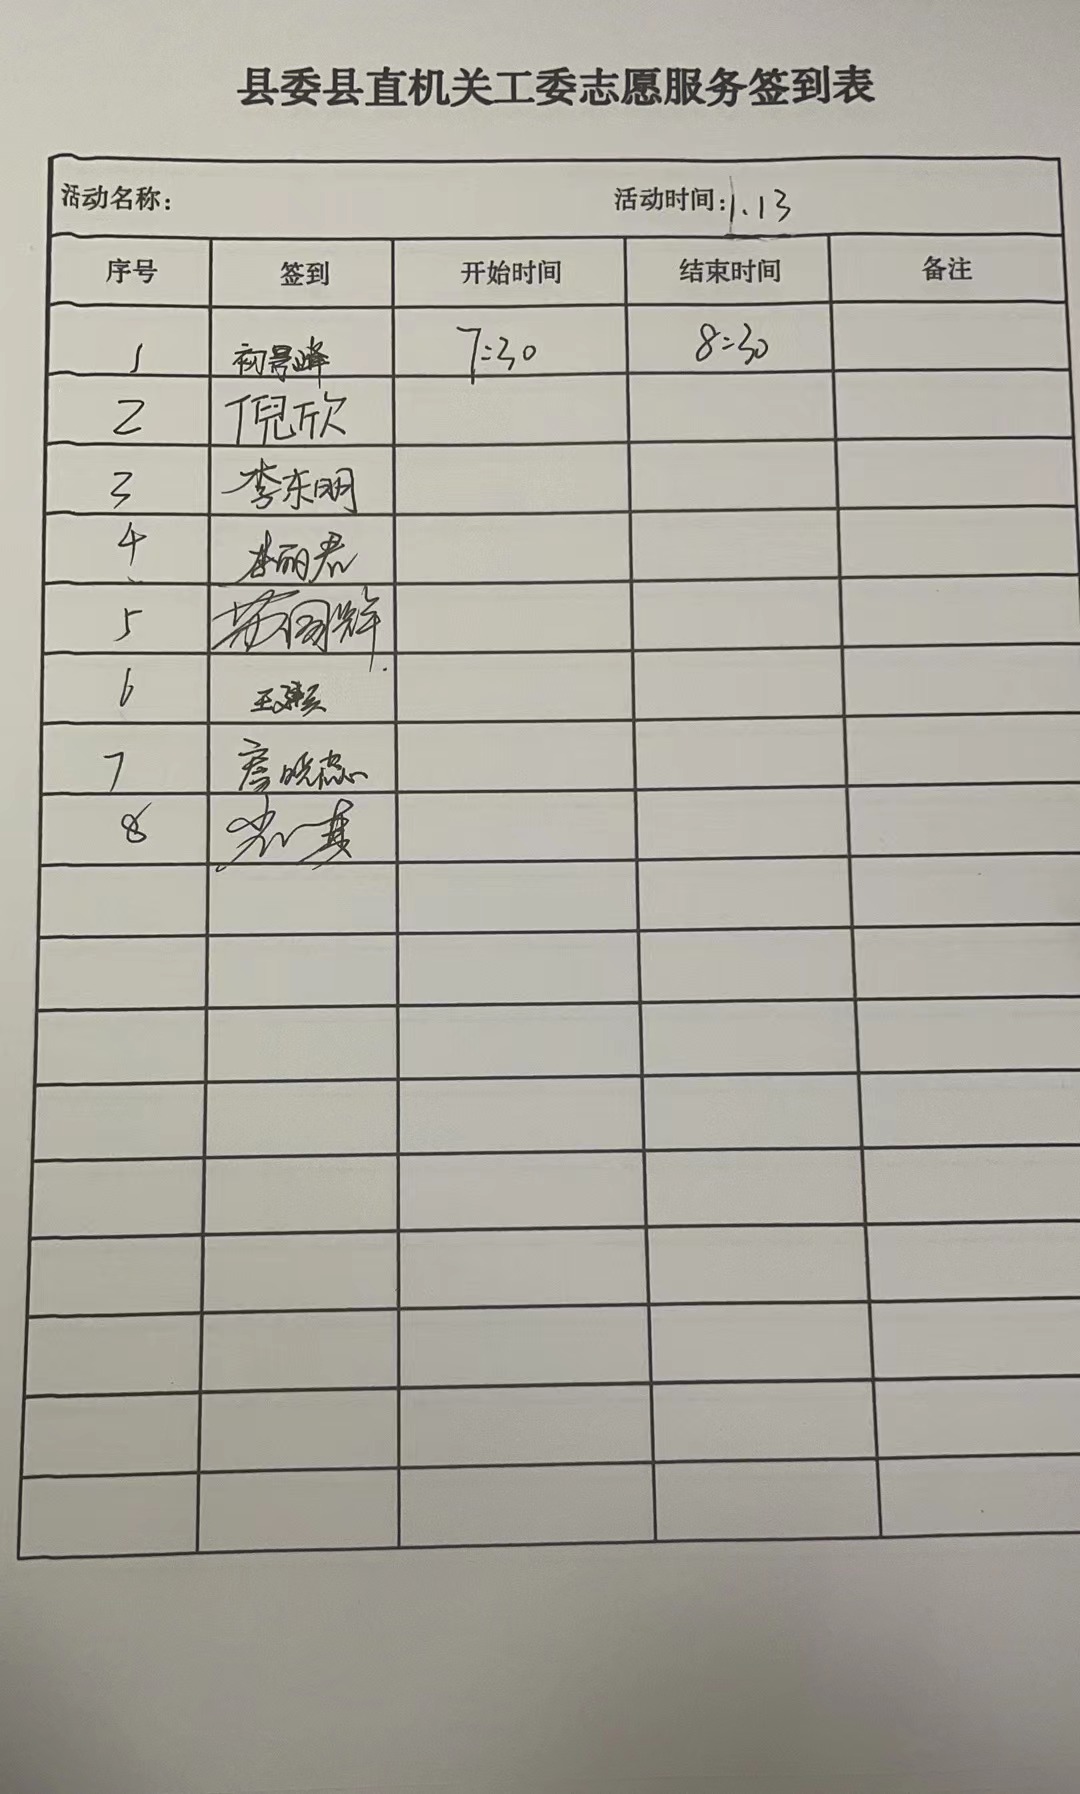 县委县直机关工委志愿服务签到表
活动名称: 活动时间:1.13
序号 签到 开始时间 结束时间 备注
1 初景峰 7:30 8:30
2 倪欣
3 李东明
4 李丽君
5 苏国辉
6
7
8